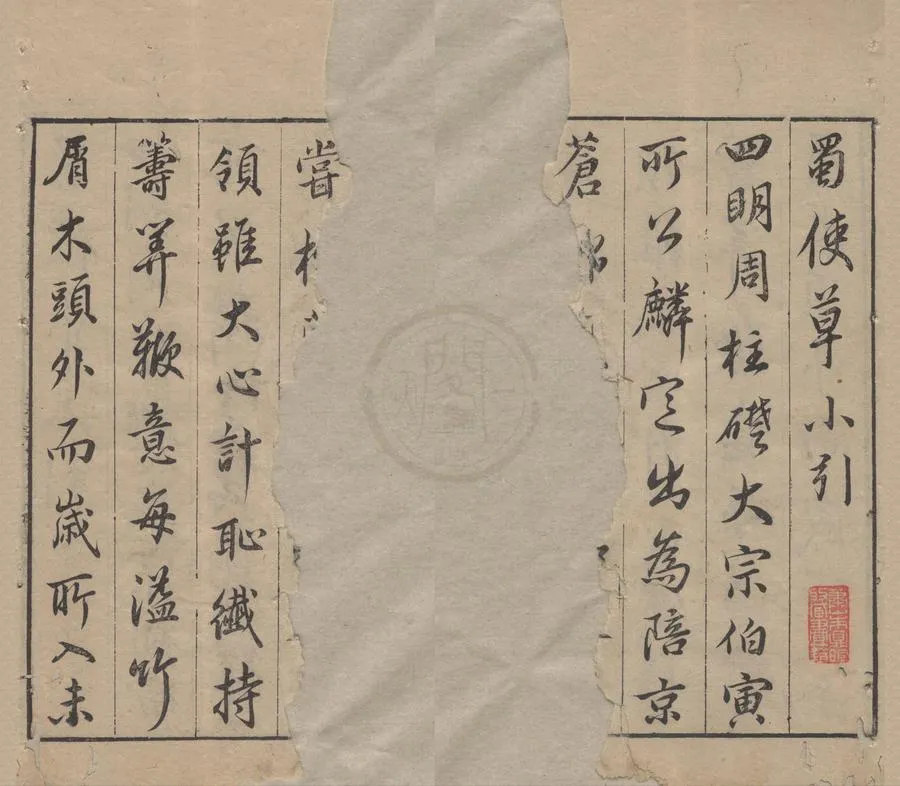 蜀使草小引
四明周柱礎大宗伯寅
所公麟定出為陪京
蒼
嘗
領雖大心計恥纖持
籌筭鞭意每溢竹
屑木頭外而歲所入未